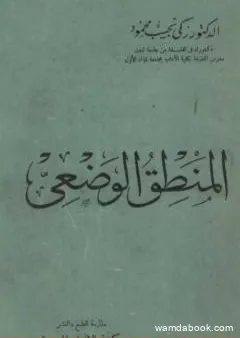 الدكتور زكي نجيب محمود
دكتوراه في الفلسفة من جامعة لندن
مدرس الفلسفة بكلية الآداب بجامعة فؤاد الأول
المنطق الوضعي
ملتزمة الطبع والنشر
wamdabook.com